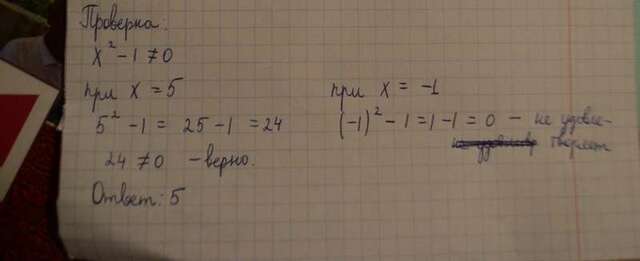 Проверка:
x² - 1 ≠ 0
при x = 5
5² - 1 = 25 - 1 = 24
24 ≠ 0 - верно.
Ответ: 5
при x = -1
(-1)² - 1 = 1 - 1 = 0 - не удовле-
творяет